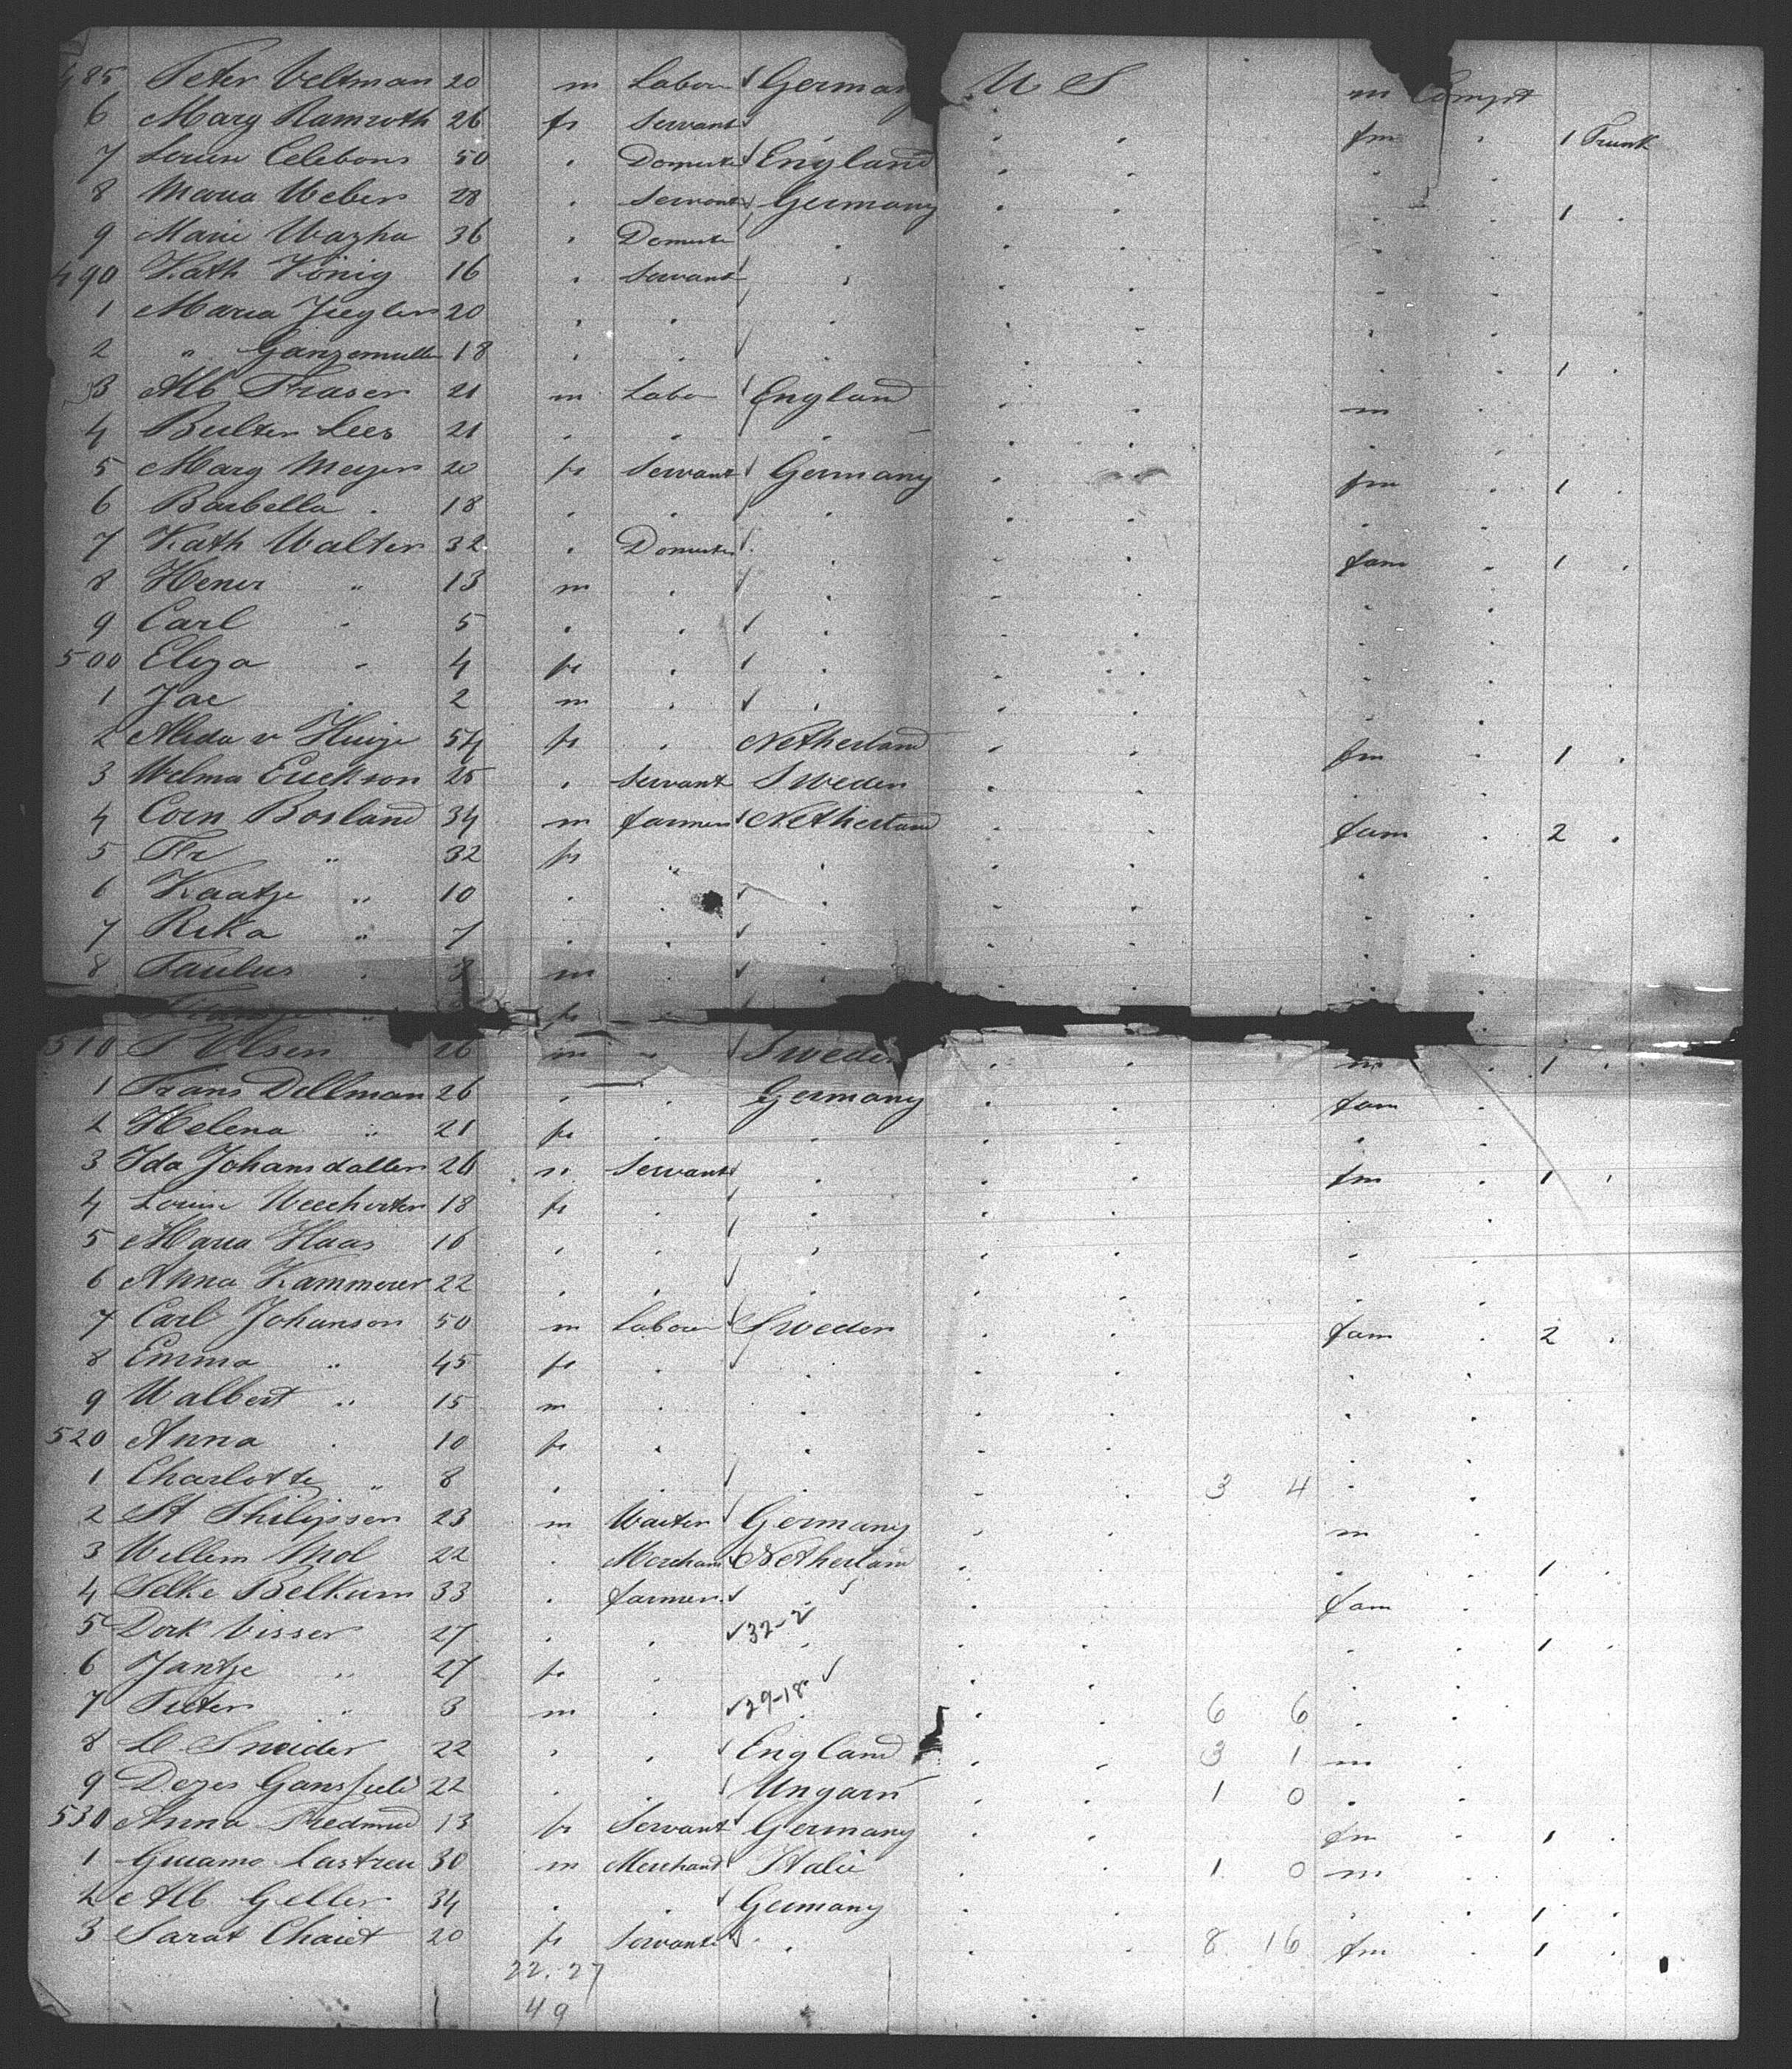 485 Peter Veltman 20 m Labour ✓ Germany U S m Compt
6 Mary Ramroth 26 fe Servant ✓ . . . fm . 1 Trunk
7 Louise Celebons 50 . Domestic ✓ England . . . .
8 Maria Weber 28 . Servant ✓ Germany . . . . 1 .
9 Marie Wazha 36 . Domestic . . . . .
490 Kath König 16 . Servant ✓ . . . . .
1 Maria Ziegler 20 . . . . . . .
2 " Ganzemuller 18 . . ✓ . . . . . 1 .
3 Alb Fraser 21 m Labo ✓ England . . m .
4 Bulter Lees 21 . . . . . . .
5 Marg Meyer 20 fe Servant ✓ Germany . fm . 1 .
6 Barbella . 18 . . . . . . .
7 Kath Walter 32 . Domestic ✓ . . . fam . 1 .
8 Hener " 13 m . ✓ . . . . .
9 Carl " 5 . . ✓ . . . . .
500 Eliza " 4 fe . ✓ . . . . .
1 Jac . 2 m . ✓ . . . . .
2 Alida v 54 fe . Netherland . . fm . 1 .
3 Welma Erickson 25 . Servant Sweden . . . .
4 Corn Bosland 34 m farmer ✓ Netherland . . fam . 2 .
5 Fr " 32 fe . . . . .
6 Kaatje " 10 . . ✓ . . . . .
7 Rika " 7 . . ✓ . . . . .
8 Paulus . m . ✓ . . . . .
" fe
510 P Olsen 26 m " ✓ Sweden . . m . 1 .
1 Frans Dellman 26 . . Germany . . fam .
2 Helena " 21 fe . . . . . .
3 Ida Johansdatter 26 m Servant ✓ . . . fm . 1 .
4 Louise 18 fe . . . . . .
5 Maria Haas 16 . . . . . . .
6 Anna Kammerer 22 . . ✓ . . . . .
7 Carl Johanson 50 m Labour ✓ Sweden . . fam . 2 .
8 Emma " 45 fe . ✓ . . . . .
9 Walbert " 15 m . . . . . .
520 Anna . 10 fe . . . . . .
1 Charlotte " 8 . . ✓ . . . 3 4 . .
2 St Philipsen 23 m Waiter ✓ Germany . . m .
3 Willem Mol 22 . Merchant ✓ Netherland . . . . 1 .
4 Selke Belkum 33 . farmer ✓ . ✓ . . fam .
5 Dirk Visser 27 . . ✓ 32-2 . . . . 1 .
6 Jantje " 27 fe . ✓ . . . .
7 Pieter " 3 m . ✓ 29-18 . . 6 6 . .
8 Snaider 22 . . ✓ England . . 3 1 m .
9 22 . . ✓ Ungarn . . 1 0 . .
530 Anna 13 fe Servant ✓ Germany . . fm . 1 .
1 30 m Merchand ✓ Italie . . 1 0 m .
2 Alb Geller 34 . . ✓ Germany . . . . 1 .
3 Sarat Chaiet 20 fe Servant ✓ . . . 8 16 fm . 1 .
22. 27
49